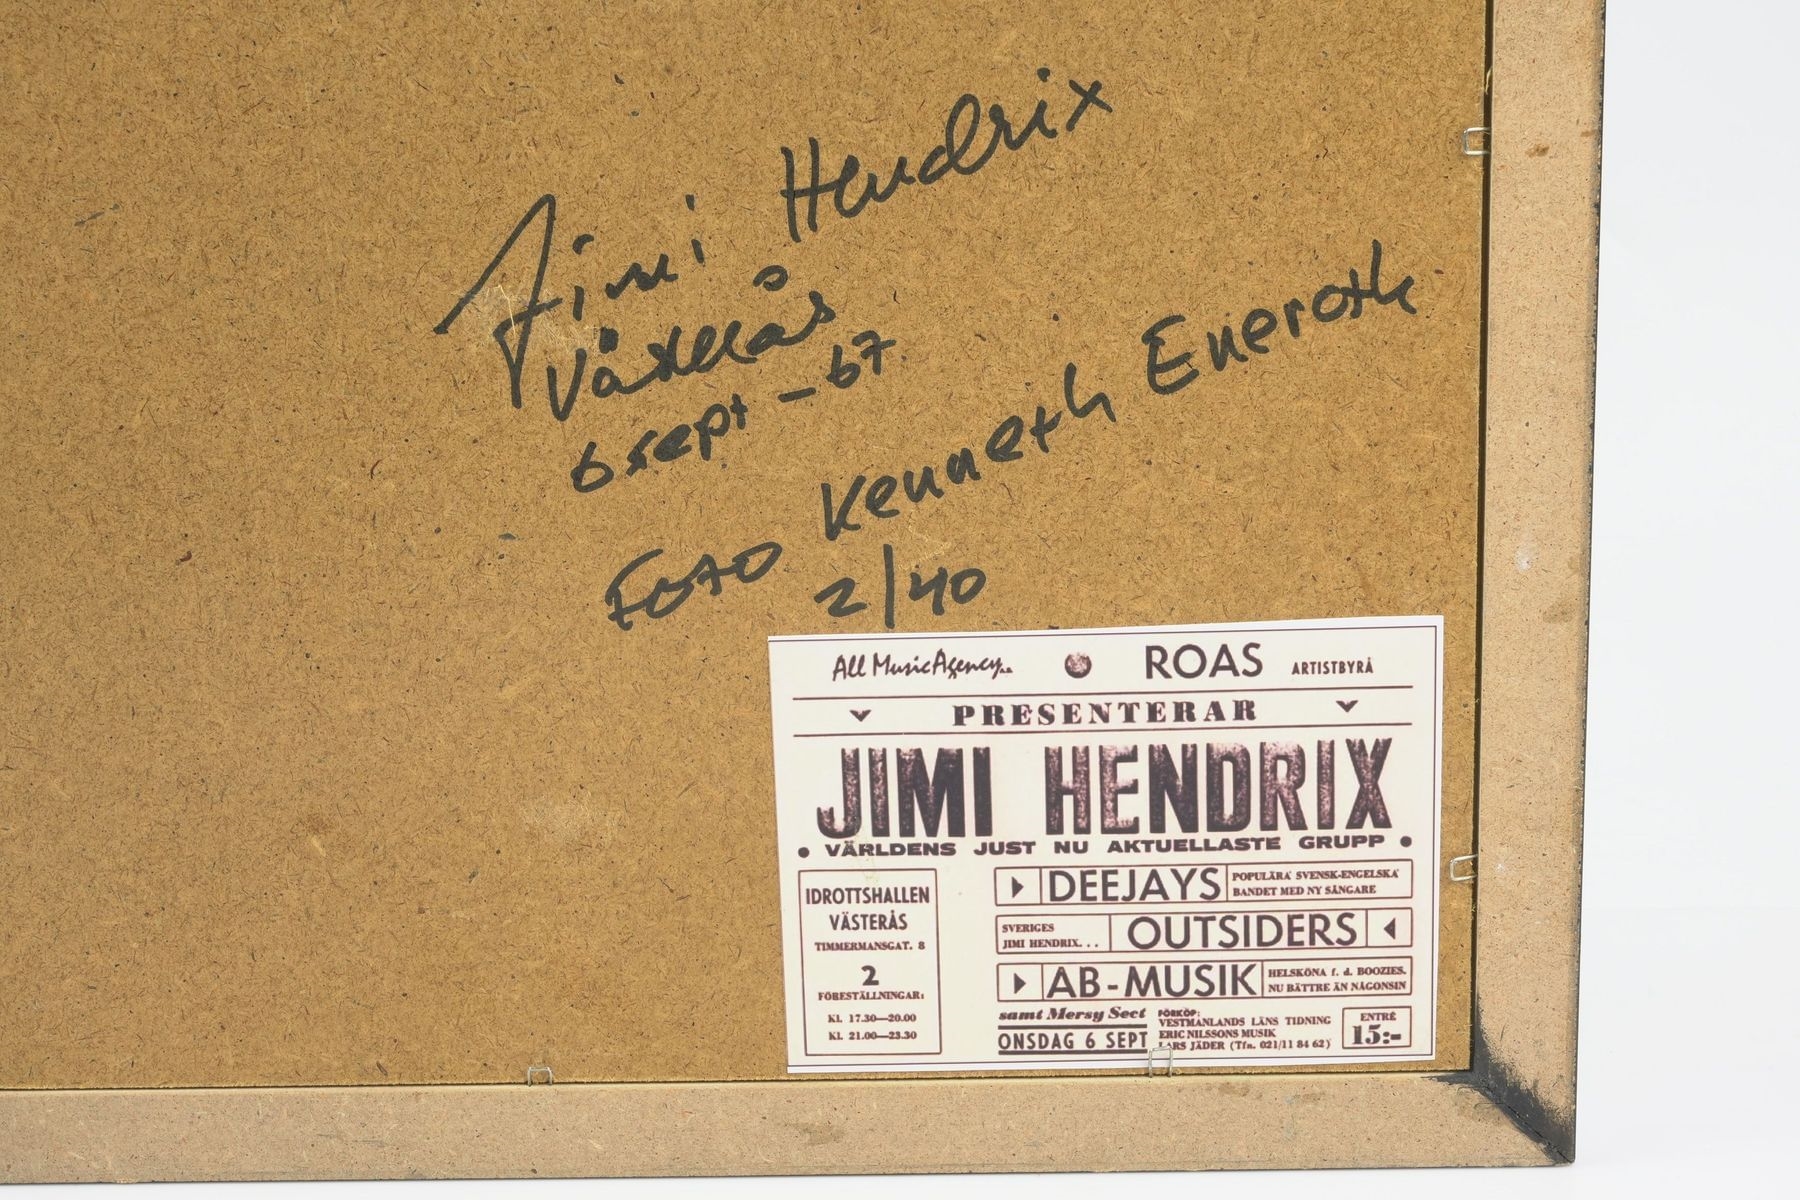 Jimi Hendrix
Västerås
6 sept - 67
Foto Kenneth Eneroth
2/40
All Music Agency AB ROAS ARTISTBYRÅ
PRESENTERAR
JIMI HENDRIX
• VÄRLDENS JUST NU AKTUELLASTE GRUPP •
IDROTTSHALLEN
VÄSTERÅS
TIMMERMANSGAT. 8
2
FÖRESTÄLLNINGAR:
Kl. 17.30—20.00
Kl. 21.00—23.30
DEEJAYS
POPULÄRA SVENSK-ENGELSKA
BANDET MED NY SÅNGARE
SVERIGES
JIMI HENDRIX...
OUTSIDERS
AB-MUSIK
HELSKÖNA f. d. BOOZIES.
NU BÄTTRE ÄN NÅGONSIN
samt Mersy Sect
ONSDAG 6 SEPT
FÖRKÖP:
VESTMANLANDS LÄNS TIDNING
ERIC NILSSONS MUSIK
LARS JÄDER (Tfn. 021/11 84 62)
ENTRÉ
15:-